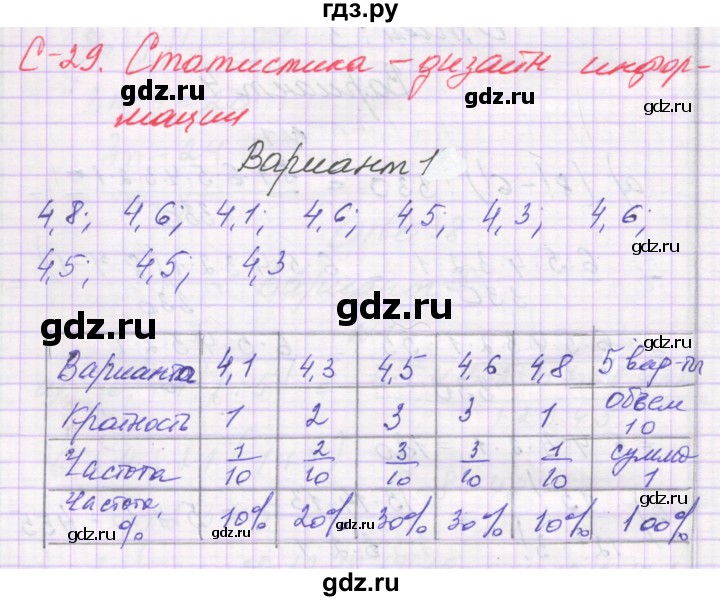 гдз.ру
С-29. Статистика - дизайн инфор-
gdz.ru gdz.ru gdz.ru
мации
Вариант 1
4,8; 4,6; 4,1; 4,6; 4,5; 4,3; 4,6;
gdz.ru
4,5; 4,5; 4,3
gdz.ru gdz.ru
Варианта 4,1 4,3 4,5 4,6 4,8 5 вар-ты
Кратность 1 2 3 3 1 объем 10
Частота 1/10 2/10 3/10 3/10 1/10 сумма 1
gdz.ru gdz.ru
Частота, % 10% 20% 30% 30% 10% 100%
gdz.ru gdz.ru gdz.ru